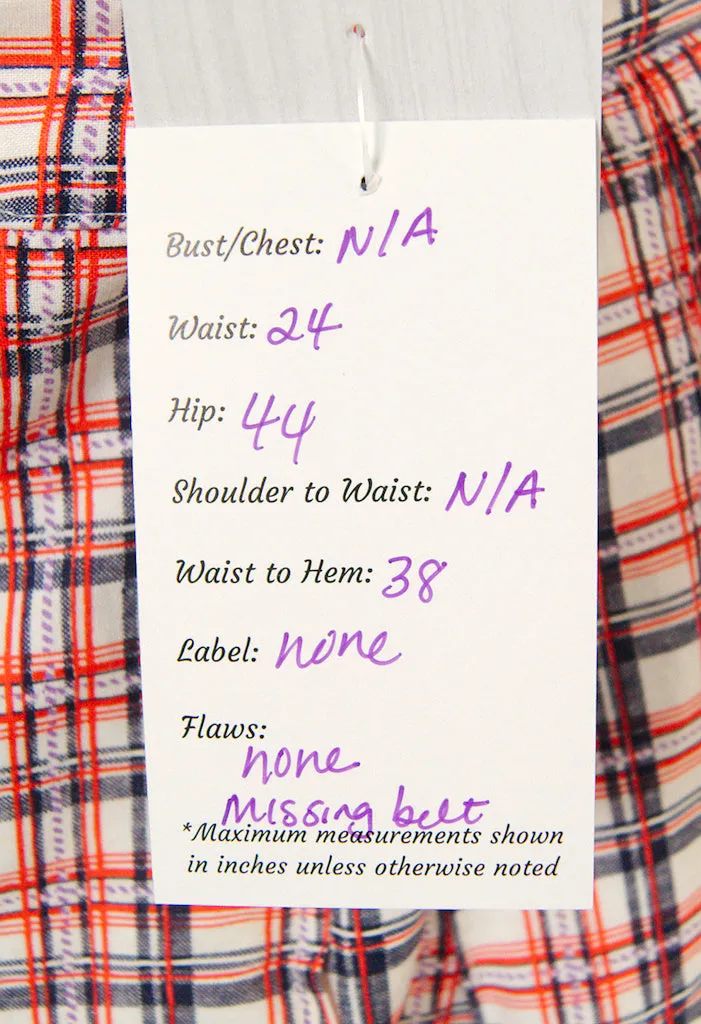 Bust/Chest: N/A
Waist: 24
Hip: 44
Shoulder to Waist: N/A
Waist to Hem: 38
Label: none
Flaws:
none
Missing belt
*Maximum measurements shown
in inches unless otherwise noted